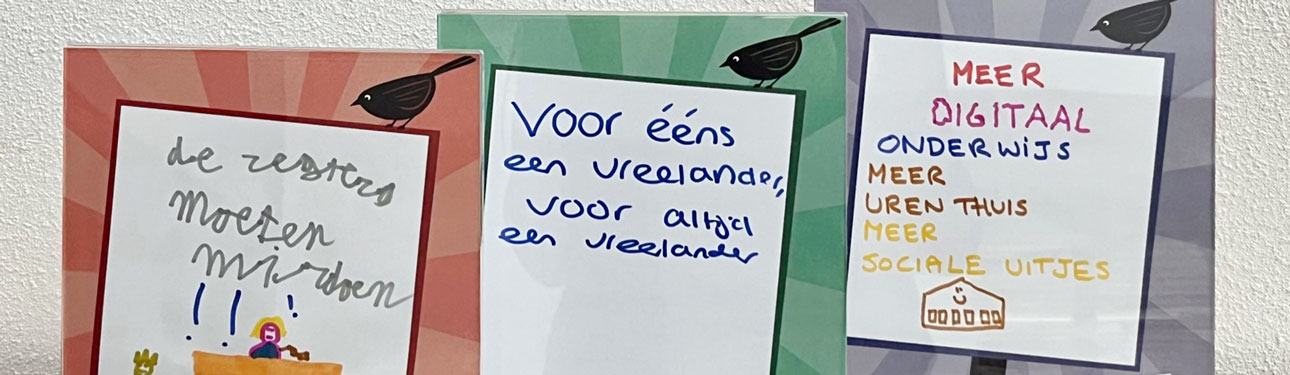 de
moeten
!! !
Voor ééns
een vreelander,
voor altijd
een vreelander
MEER
DIGITAAL
ONDERWIJS
MEER
UREN THUIS
MEER
SOCIALE UITJES